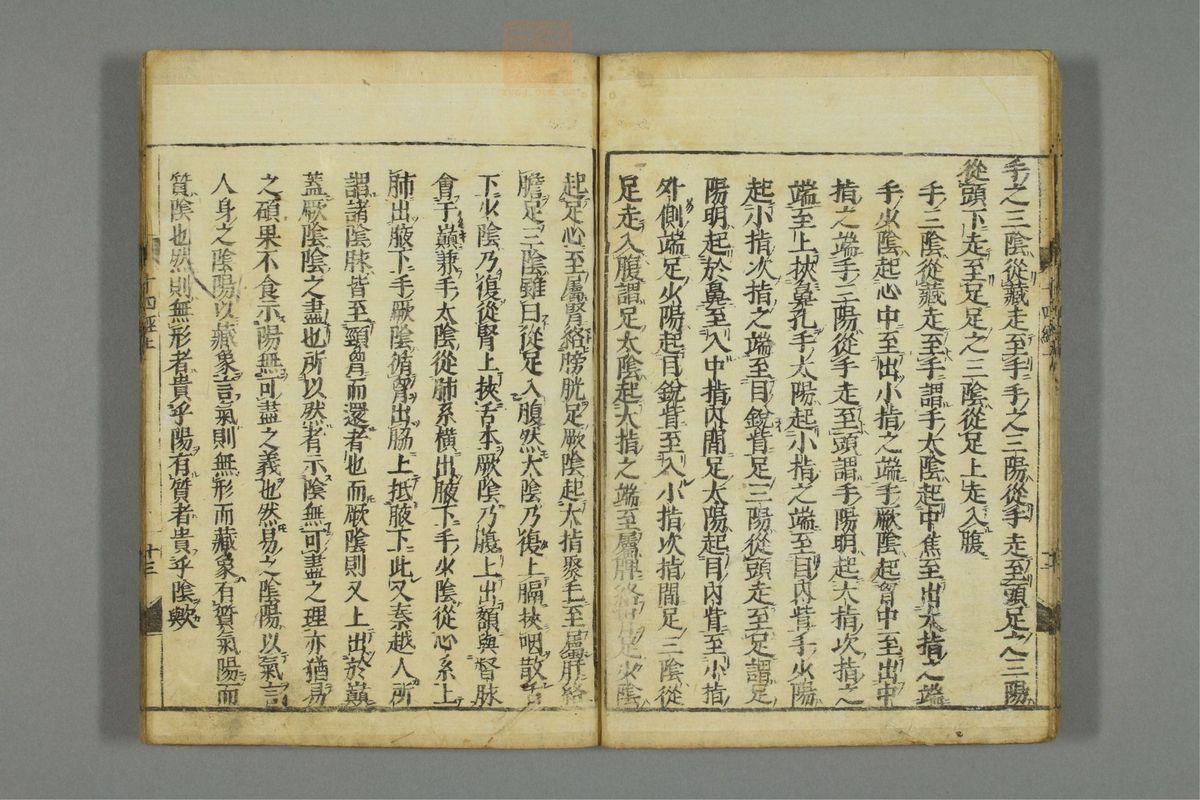 手之三陰從藏走至手手之三陽從手走至頭足之三陽
從頭下走至足足之三陰從足上走入腹
手三陰從藏走至手謂手太陰起中焦至出大指之端
手少陰起心中至出小指之端手厥陰起胷中至出中
指之端手三陽從手走至頭謂手陽明起大指次指之
端至上挾鼻孔手太陽起小指之端至目內眥手少陽
起小指次指之端至目銳眥足三陽從頭走至足謂足
陽明起於鼻至入中指內間足太陽起目內眥至小指
外側端足少陽起目銳眥至入小指次指間足三陰從
足走入腹謂足太陰起大指之端至屬脾絡胃足少陰
起足心至屬腎絡膀胱足厥陰起大指聚毛至屬肝絡
膽足三陰雖曰從足入腹然太陰乃復上膈挾咽散舌
下少陰乃復從腎上挾舌本厥陰乃復上出額與督脉
會于巔兼手太陰從肺系橫出腋下手少陰從心系上
肺出腋下手厥陰循胷出脇上抵腋下此又秦越人所
謂諸陰脉皆至頸胷而還者也而厥陰則又上出於巔
蓋厥陰陰之盡也所以然者示陰無可盡之理亦猶易
之碩果不食示陽無可盡之義也然易之陰陽以氣言
人身之陰陽以藏象言氣則無形而藏象有質氣陽而
質陰也然則無形者貴乎陽有質者貴乎陰歟
十四經上
十三